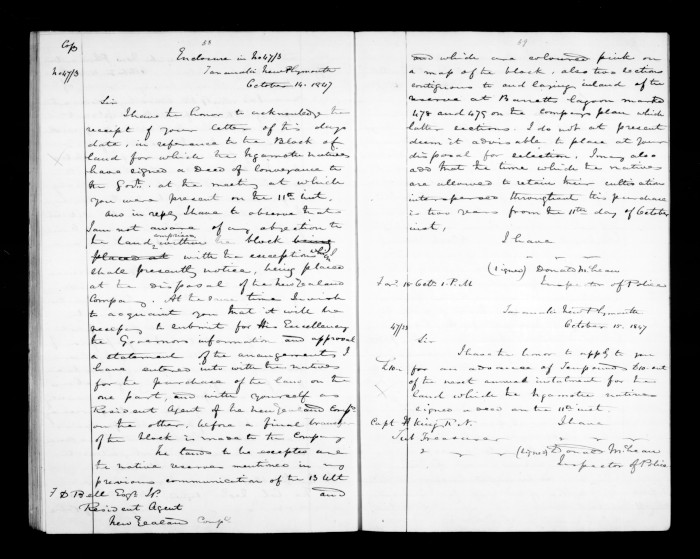 Cop
68
Enclosure in No 47/3
No 47/3
Taranaki New Plymouth
October 14. 1847
Sir
I have the honor to acknowledge the
receipt of your letter of this days
date, in reference to the Block of
land for which the Ngamotu natives
have signed a Deed of Conveyance to
the Govt. at the meeting at which
you were present on the 11th inst.
And in reply I have to observe that
I am not aware of any objection to
the land comprised within the block being
placed at with the exceptions which I
shall presently notice, being placed
at the disposal of the New Zealand
Company. At the same time I wish
to acquaint you that it will be
necessary to submit for His Excellency
the Governors information and approval
a statement of the arrangements I
have entered into with the natives
for the purchase of the land on the
one part, and with yourself as
Resident Agent of the New Zealand Compy
on the other, before a final transfer
of the block is made to the Company
The lands to be excepted are
the native reserves mentioned in my
previous communication of the 13 Ult
and
F D Bell Esqr JP.
Resident Agent
New Zealand Compy
69
and which are coloured pink on
a map of the block, also two sections
contiguous to and laying inland of the
reserve at Barretts lagoon marked
478 and 479 on the companys plan which
latter sections I do not at present
deem it advisable to place at your
disposal for selection. I may also
add that the time which the natives
are allowed to retain their cultivation
interspersed throughout this purchase
is two years from the 11th day of October
inst,
I have
(Signed) Donald McLean
Inspector of Police
18 Octr 1 P.M
Taranaki New Plymouth
October 15. 1847
47/33
Sir
I have the honor to apply to you
for an advance of Ten pounds £10. out
of the next annual instalment for the
land which the Ngamotu natives
signed a deed on the 11th inst
I have
Capt H King R.N.
Sub Treasurer
(Signed) Donald McLean
Inspector of Police